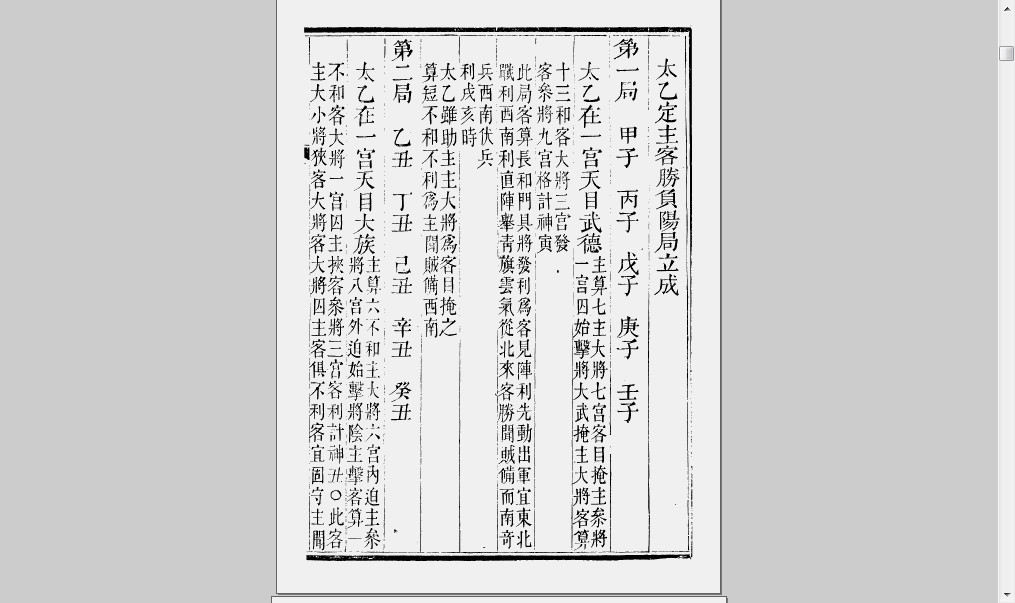 太乙定主客勝負陽局立成
第一局 甲子 丙子 戊子 庚子 壬子
太乙在一宮天目武德主算七主大將七宮客目掩主叅將
一宮囚始擊將大武掩主大將客算
十三和客大將三宮發
客叅將九宮格計神寅
此局客算長和門具將發利為客見陣利先動出軍宜東北
戰利西南利直陣舉青旗雲氣從北來客勝聞賊備西南竒
兵西南伏兵
利戌亥時
太乙雖助主主大將為客目掩之
算短不和不利為主聞賊備西南
第二局 乙丑 丁丑 己丑 辛丑 癸丑
太乙在一宮天目大族主算六不和主大將六宮內迫主叅
將八宮外迫始擊將陰主擊客算一
不和客大將一宮囚主挾客叅將三宮客利計神丑○此客
主大小將狹客大將客大將囚主客俱不利客宜固守主聞